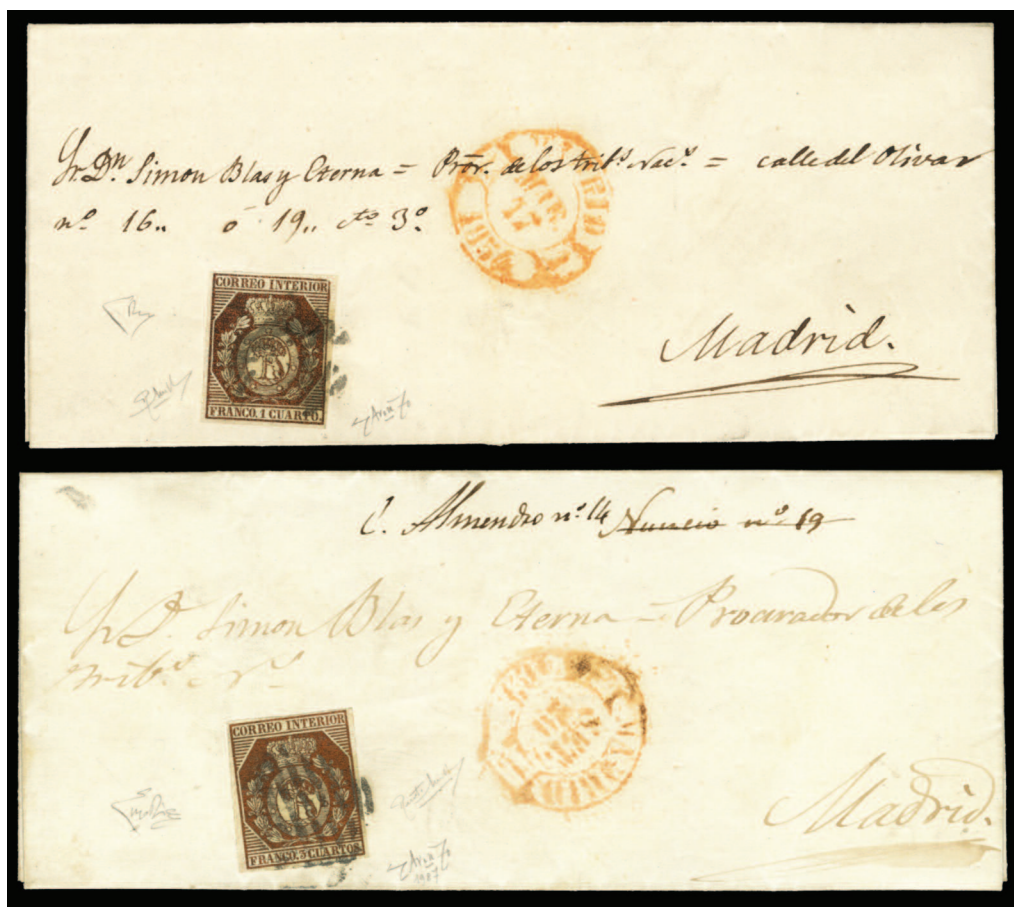 Sr. Dn. Simon Blas y Eterna = Pror. de los tribs. Nacs. = calle del Olivar
nº 16,, ó 19,, cto 3º
CORREO INTERIOR
FRANCO. 1 CUARTO.
Madrid.
C. Almendro nº 14 Nuncio nº 19
Sr. D. Simon Blas y Eterna = Procurador de los
tribs.
CORREO INTERIOR
FRANCO. 3 CUARTOS.
MADRID
Madrid.